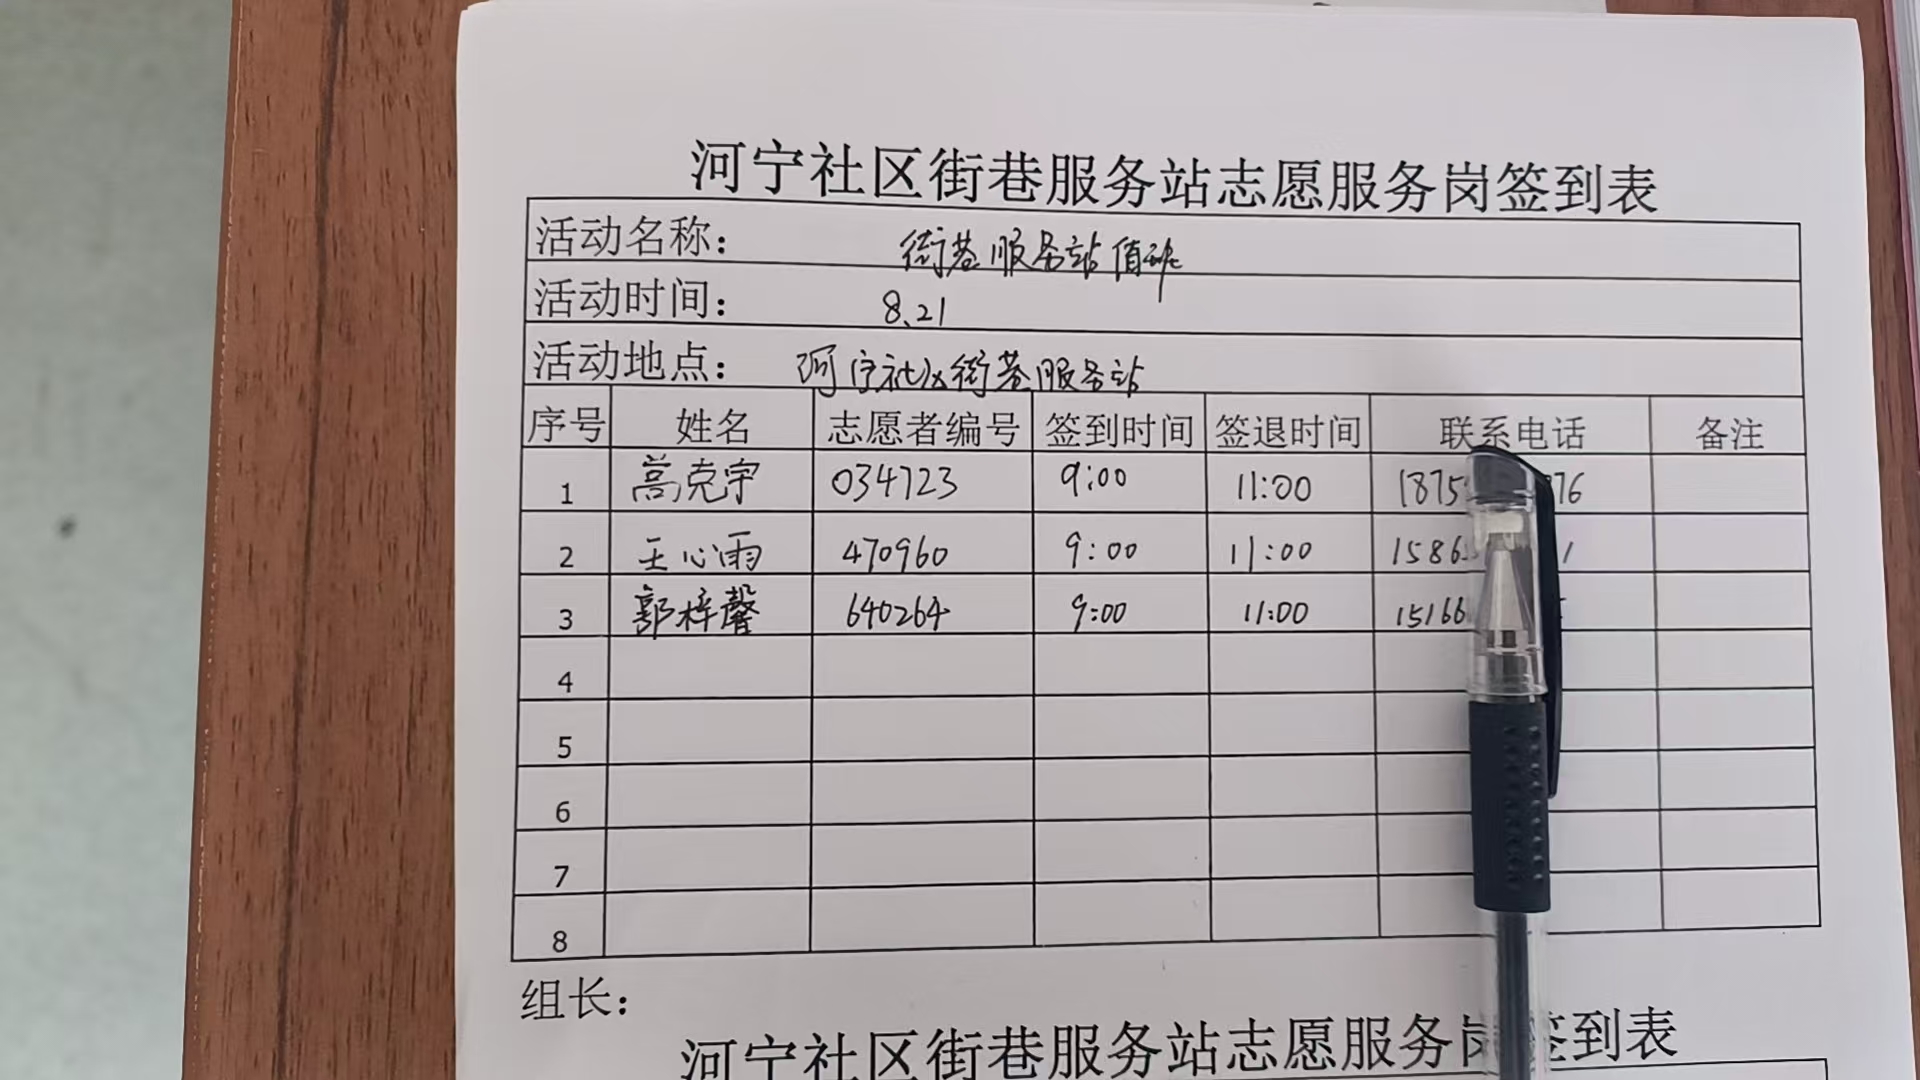 河宁社区街巷服务站志愿服务岗签到表
活动名称： 街巷服务站值班
活动时间： 8.21
活动地点： 河宁社区街巷服务站
序号 姓名 志愿者编号 签到时间 签退时间 联系电话 备注
1 高克宇 034723 9:00 11:00 1875 76
2 王心雨 470960 9:00 11:00 1586 1
3 郭梓馨 640264 9:00 11:00 15166
4
5
6
7
8
组长：
河宁社区街巷服务站志愿服务岗签到表